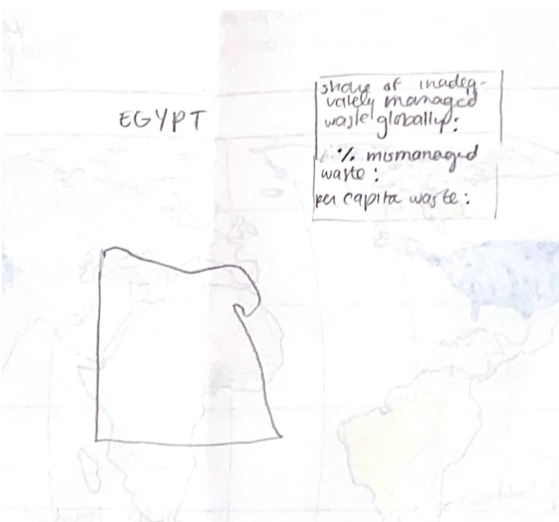 EGYPT
share of inadeq-
uately managed
waste globally:
% mismanaged
waste:
per capita waste: